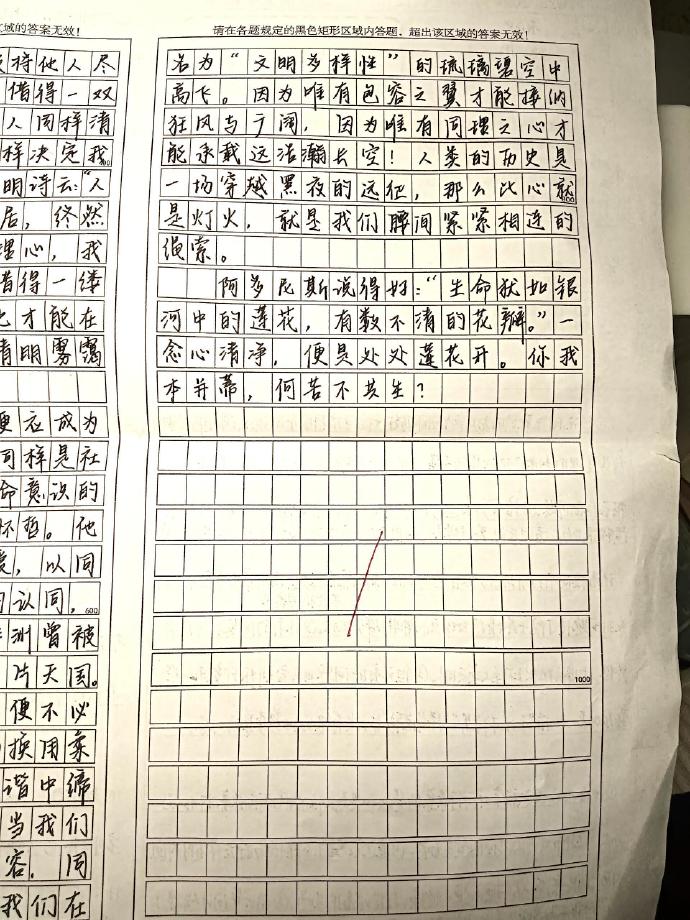 区域的答案无效！
持他人尽
借得一双
人同样清
样决定我
明诗云：“人
居，终然
理心，我
借得一缕
也才能在
清明雾霭
便衣成为
同样是社
命意识的
怀哲。他
度，以同
认同，
600
洲曾被
片天国。
便不必
换用柔
谐中缔
当我们
容，同
我们在
请在各题规定的黑色矩形区域内答题，超出该区域的答案无效！
名为“文明多样性”的琉璃碧空中
高飞。因为唯有包容之翼才能接纳
狂风与广阔，因为唯有同理之心才
能承载这浩瀚长空！人类的历史是
一场穿越黑夜的远征，那么比心就
是灯火，就是我们腰间紧紧相连的
绳索。
阿多尼斯说得好：“生命犹如银
河中的莲花，有数不清的花瓣。”一
念心清净，便是处处莲花开。你我
本并蒂，何苦不共生？
1000